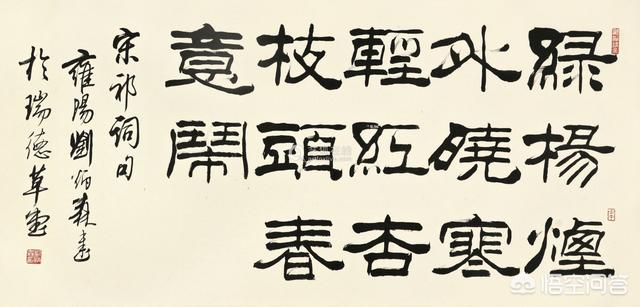 緑楊煙
外曉寒
輕紅杏
枝頭春
意鬧
宋祁詞句
雍陽劉炳森書
於瑞德草堂
悟空问答